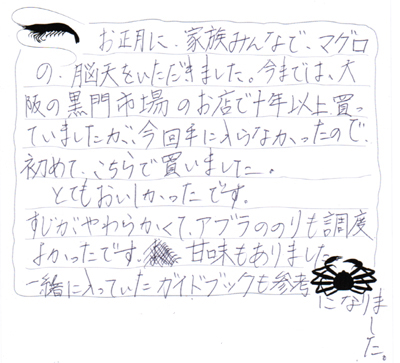 お正月に、家族みんなで、マグロ
の、脳天をいただきました。今までは、大
阪の黒門市場のお店で十年以上買っ
ていましたが、今回手に入らなかったので、
初めて、こちらで買いました。
とてもおいしかったです。
すじがやわらかくて、アブラののりも調度
よかったです。甘味もありました
一緒に入っていたガイドブックも参考
になりま
した。